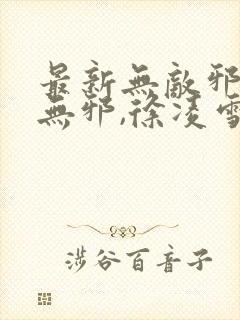 最新無敵邪
無邪,徐凌雪
涉谷百音子